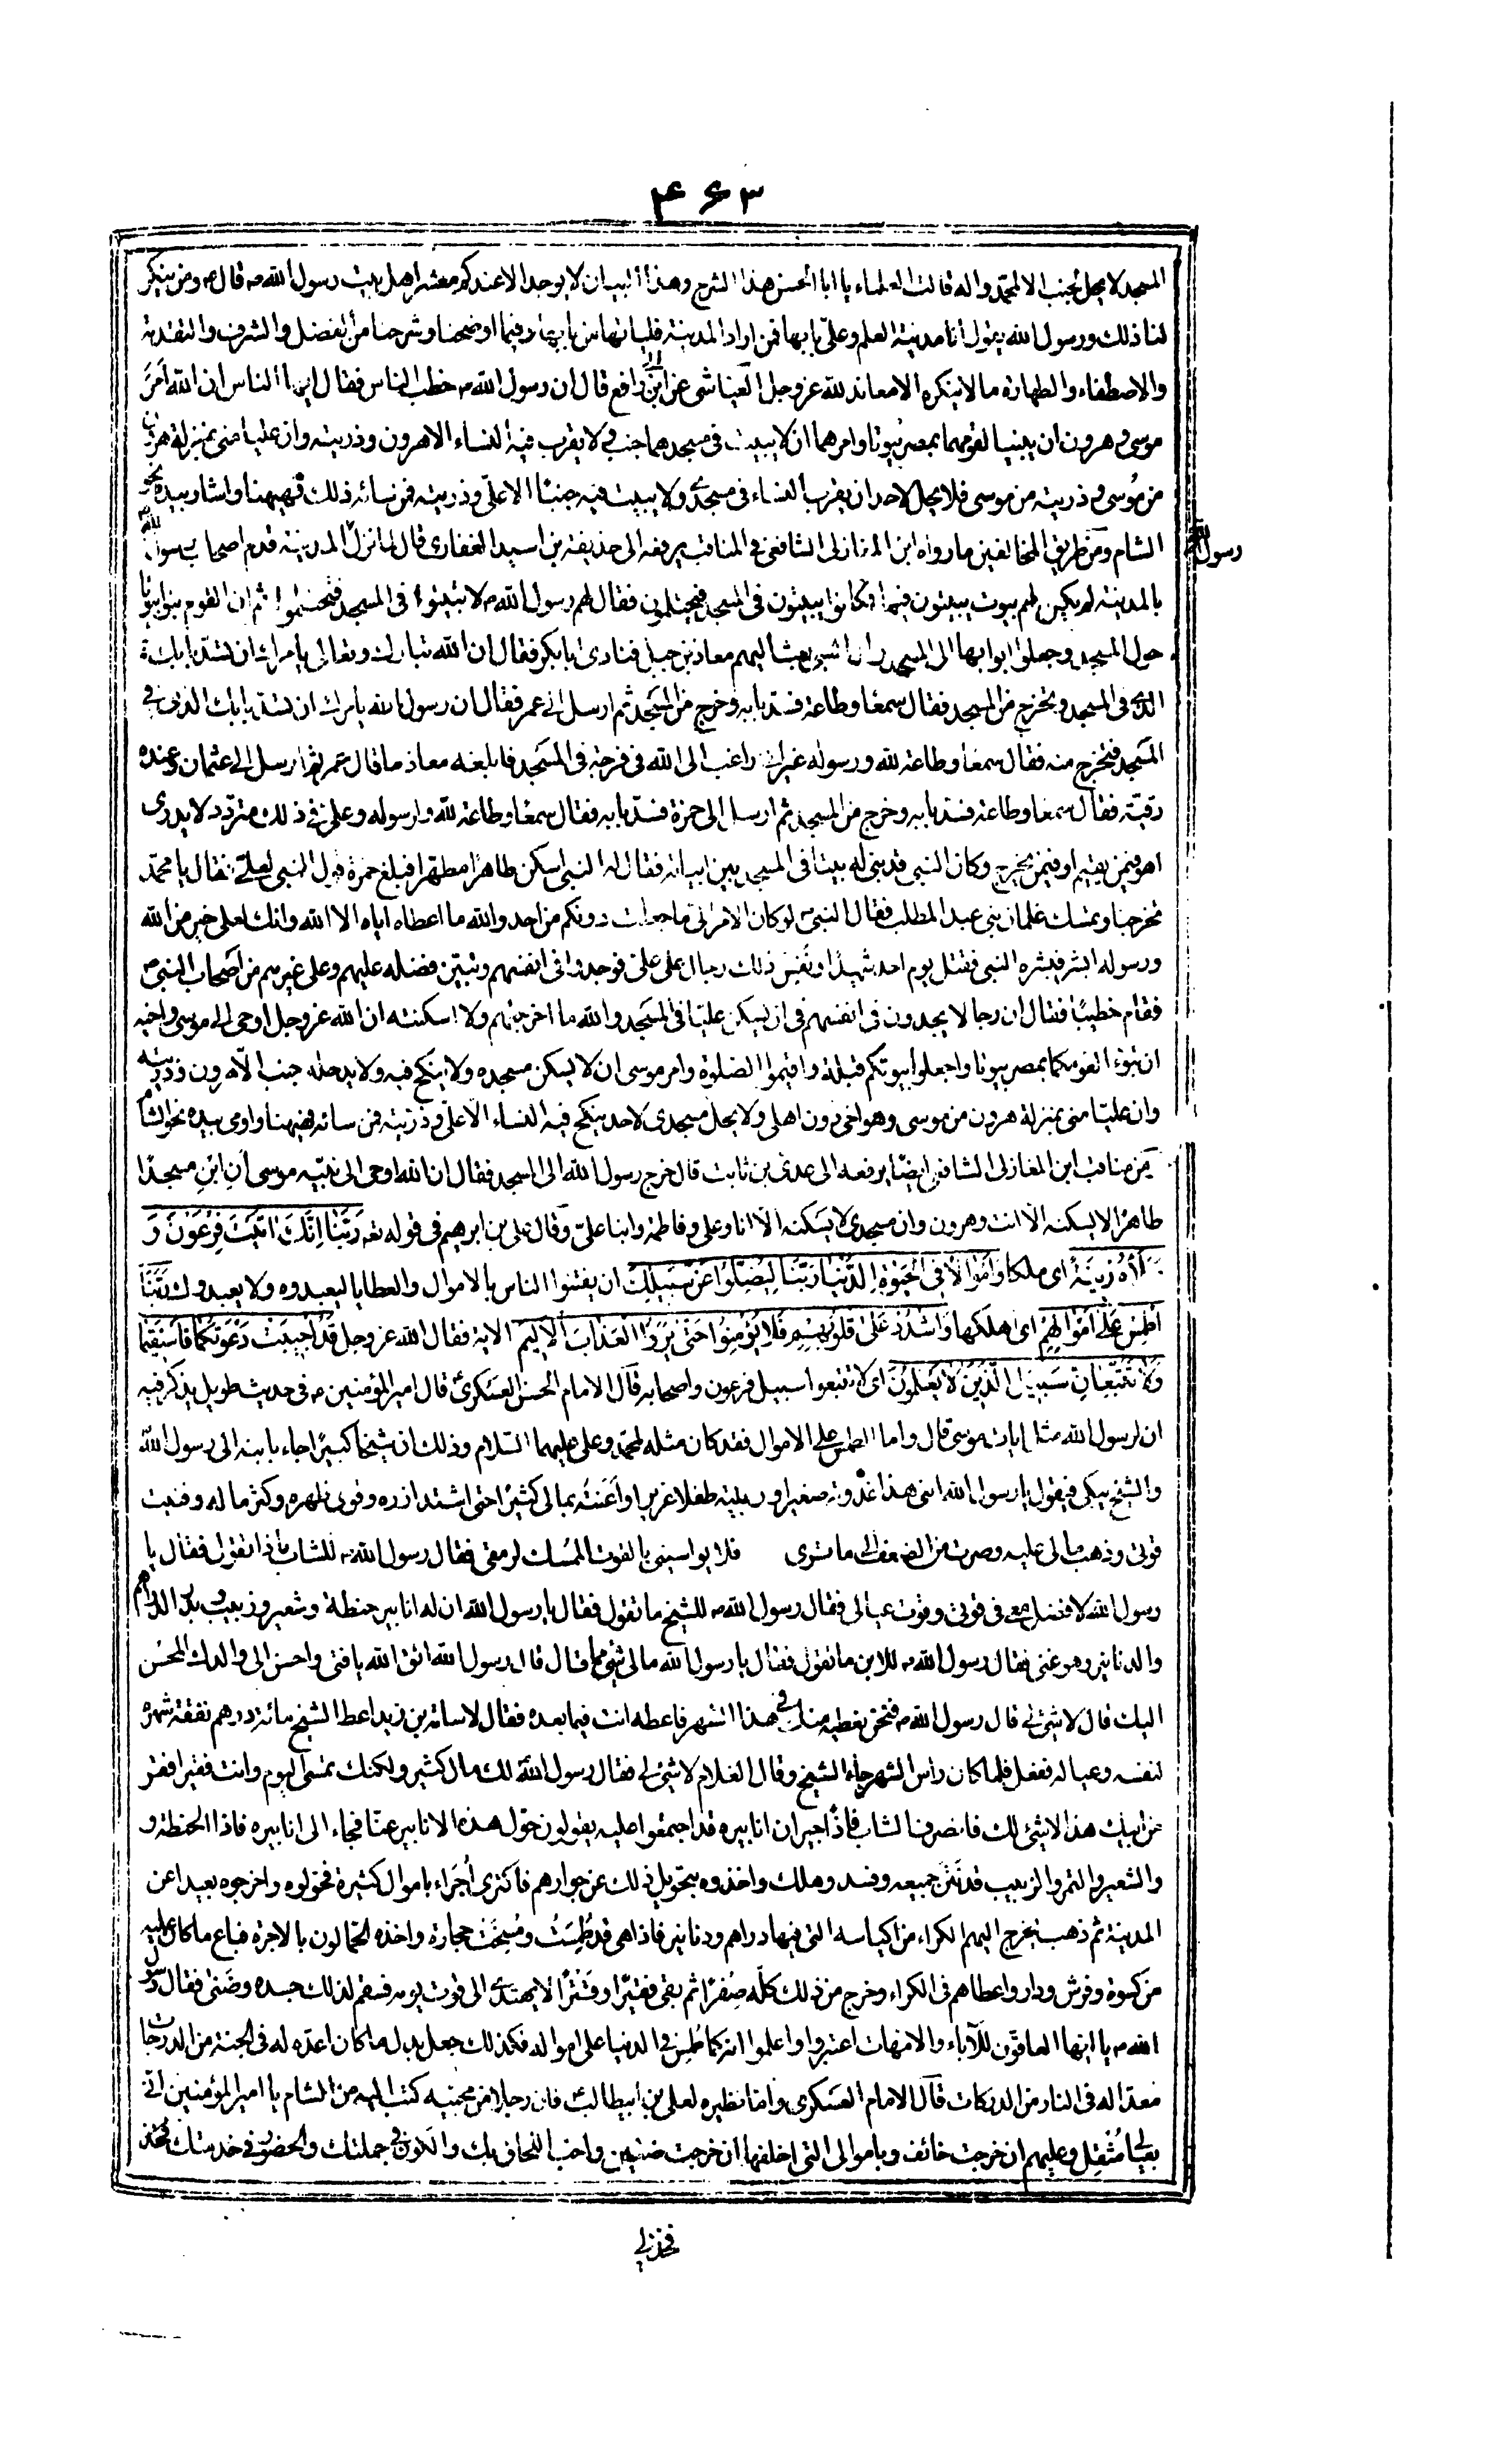 ۴۶۳
المسجد لا يحل لجنب الا لمحمد واله قالت العلماء يا ابا الحسن هذا الشرح وهذا البيان لا يوجد الا عندكم معشر اهل بيت رسول الله ص قال ومن ينكر
لنا ذلك ورسول الله يقول انا مدينة العلم وعلي بابها فمن اراد المدينة فلياتها من بابها وفيما اوضحنا وشرحنا من الفضل والشرف والتقدمة
والاصطفاء والطهارة ما لا ينكره الا معاند لله عز وجل العياشي عن ابي رافع قال ان رسول الله ص خطب الناس فقال ايها الناس ان الله امر
موسى وهرون ان يبنيا لقومهما بمصر بيوتا وامرهما ان لا يبيت في مسجدهما جنب ولا يقرب فيه النساء الا هرون وذريته وان عليا مني بمنزلة هرون
من موسى وذريته من موسى فلا يحل لاحد ان يقرب النساء في مسجدي ولا يبيت فيه جنبا الا علي وذريته فمن سائه ذلك فهيهنا واشار بيده نحو
الشام ومن طريق المخالفين ما رواه ابن المغازلي الشافعي في المناقب يرفعه الى حذيفة بن اسيد الغفاري قال لما نزل المدينة قدم اصحاب رسول الله
رسول الله
بالمدينة لم يكن لهم بيوت يبيتون فيها فكانوا يبيتون في المسجد فيحتلمون فقال لهم رسول الله ص لا تبيتوا في المسجد فتحتلموا ثم ان القوم بنوا بيوتا
حول المسجد وجعلوا ابوابها الى المسجد وان النبي بعث اليهم معاذ بن جبل فنادى ابا بكر فقال ان الله تبارك وتعالى يأمرك ان تسد بابك
الذي في المسجد وتخرج من المسجد فقال سمعا وطاعة فسد بابه وخرج من المسجد ثم ارسل الى عمر فقال ان رسول الله يأمرك ان تسد بابك الذي في
المسجد فتخرج منه فقال سمعا وطاعة لله ورسوله غير اني راغب الى الله في فرجة في المسجد فابلغه معاذ ما قال عمر ثم ارسل الى عثمان وعنده
رقية فقال سمعا وطاعة فسد بابه وخرج من المسجد ثم ارسل الى حمزة فسد بابه فقال سمعا وطاعة لله ولرسوله وعلي في ذلك متردد لا يدري
اهو فيمن يقيم او فيمن يخرج وكان النبي قد بنى له بيتا في المسجد بين ابياته فقال له النبي اسكن طاهرا مطهرا فبلغ حمزة قول النبي لعلي فقال يا محمد
تخرجنا وتمسك غلمان بني عبد المطلب فقال النبي ص لو كان الامر لي ما جعلت دونكم من احد والله ما اعطاه اياه الا الله وانك لعلى خير من الله
ورسوله ابشر فبشره النبي فقتل يوم احد شهيدا ونفس ذلك رجال على علي فوجدوا في انفسهم وتبين فضله عليهم وعلى غيرهم من اصحاب النبي ص
فقام خطيبا فقال ان رجالا يجدون في انفسهم في ان يسكن عليا في المسجد والله ما اخرجتهم ولا اسكنته ان الله عز وجل اوحى الى موسى واخيه
ان تبوء لقومكما بمصر بيوتا واجعلوا بيوتكم قبلة واقيموا الصلوة وامر موسى ان لا يسكن مسجده ولا ينكح فيه ولا يدخله جنب الا هرون وذريته
وان عليا مني بمنزلة هرون من موسى وهو اخي دون اهلي ولا يحل مسجدي لاحد ينكح فيه النساء الا علي وذريته فمن سائه فهيهنا واومى بيده نحو الشام
من مناقب ابن المغازلي الشافعي ايضا يرفعه الى عدي بن ثابت قال خرج رسول الله الى المسجد فقال ان الله اوحى الى نبيه موسى ان ابن مسجدا
طاهرا لا يسكنه الا انت وهرون وان مسجدي لا يسكنه الا انا وعلي وفاطمة وابنا علي وقال علي بن ابرهيم في قوله تعه ربنا انك اتيت فرعون و
ملأه زينة اي ملكا واموالا في الحيوة الدنيا ربنا ليضلوا عن سبيلك ان يفتنوا الناس بالاموال والعطايا ليعبدوه ولا يعبدوك ربنا
اطمس على اموالهم اي اهلكها واشدد على قلوبهم فلا يؤمنوا حتى يروا العذاب الاليم الاية فقال الله عز وجل قد اجيبت دعوتكما فاستقيما
ولا تتبعان سبيل الذين لا يعلمون اي لا تتبعوا سبيل فرعون واصحابه قال الامام الحسن العسكري قال امير المؤمنين ع في حديث طويل يذكر فيه
ان لرسول الله مثل ايات موسى قال واما الطمس على الاموال فقد كان مثله لمحمد وعلي عليهما السلام وذلك ان شيخا كبيرا جاء بابنه الى رسول الله
والشيخ يبكي فيقول يا رسول الله ابني هذا غذوته صغيرا وربيته طفلا عزيزا واعنته بمالي كثيرا حتى اشتد ازره وقوي ظهره وكثر ماله وفنيت
قوتي وذهب مالي عليه وصرت من الضعف الى ما ترى فلا يواسيني بالقوت الممسك لرمقي فقال رسول الله ص للشاب ماذا تقول فقال يا
رسول الله لا فضل معي في قوتي وقوت عيالي فقال رسول الله ص للشيخ ما تقول فقال يا رسول الله ان له انابير حنطة وشعير وزبيب وبدر الدراهم
والدنانير وهو غني فقال رسول الله ص للابن ما تقول فقال يا رسول الله مالي شيء مما قال قال رسول الله اتق الله يا فتى واحسن الى والدك المحسن
اليك قال لا شيء لي قال رسول الله ص فنحن نعطيه عنك في هذا الشهر فاعطه انت فيما بعده فقال لاسامة بن زيد اعط الشيخ مائة درهم نفقة شهره
لنفسه وعياله ففعل فلما كان رأس الشهر جاء الشيخ وقال الغلام لا شيء لي فقال رسول الله لك مال كثير ولكنك تمسي اليوم وانت فقير افقر
من ابيك هذا لا شيء لك فانصرف الشاب فاذا جيران انابيره قد اجتمعوا عليه يقولون حول هذه الانابير عنا فجاء الى انابيره فاذا الحنطة و
والشعير والتمر والزبيب قد نتن جميعه وفسد وهلك واخذوه بتحويل ذلك عن جوارهم فاكترى اجراء باموال كثيرة فحولوه واخرجوه بعيدا عن
المدينة ثم ذهب يخرج اليهم الكراء من اكياسه التي فيها دراهم ودنانير فاذا هي قد طمست ومسخت حجارة واخذه الحمالون بالاجرة فباع ما كان عليه
من كسوة وفرش ودار واعطاهم في الكراء وخرج من ذلك كله صفرا ثم بقي فقيرا وقترا لا يهتدي الى قوت يومه فسقم لذلك جسده وضنى فقال رسول
الله ص يا ايها العاقون للآباء والامهات اعتبروا واعلموا انه كما طمس في الدنيا على امواله فكذلك جعل بدل ما كان اعده له في الجنة من الدرجات
معدا له في النار من الدركات قال الامام العسكري واما نظيره لعلي بن ابيطالب فان رجلا من محبيه كتب اليه من الشام يا امير المؤمنين اني
بعيالي مثقل وعليهم ان خرجت خائف وباموالي التي اخلفها ان خرجت ضنين واحب اللحاق بك والكون في جملتك والحضور في خدمتك فخذ
فخذلي